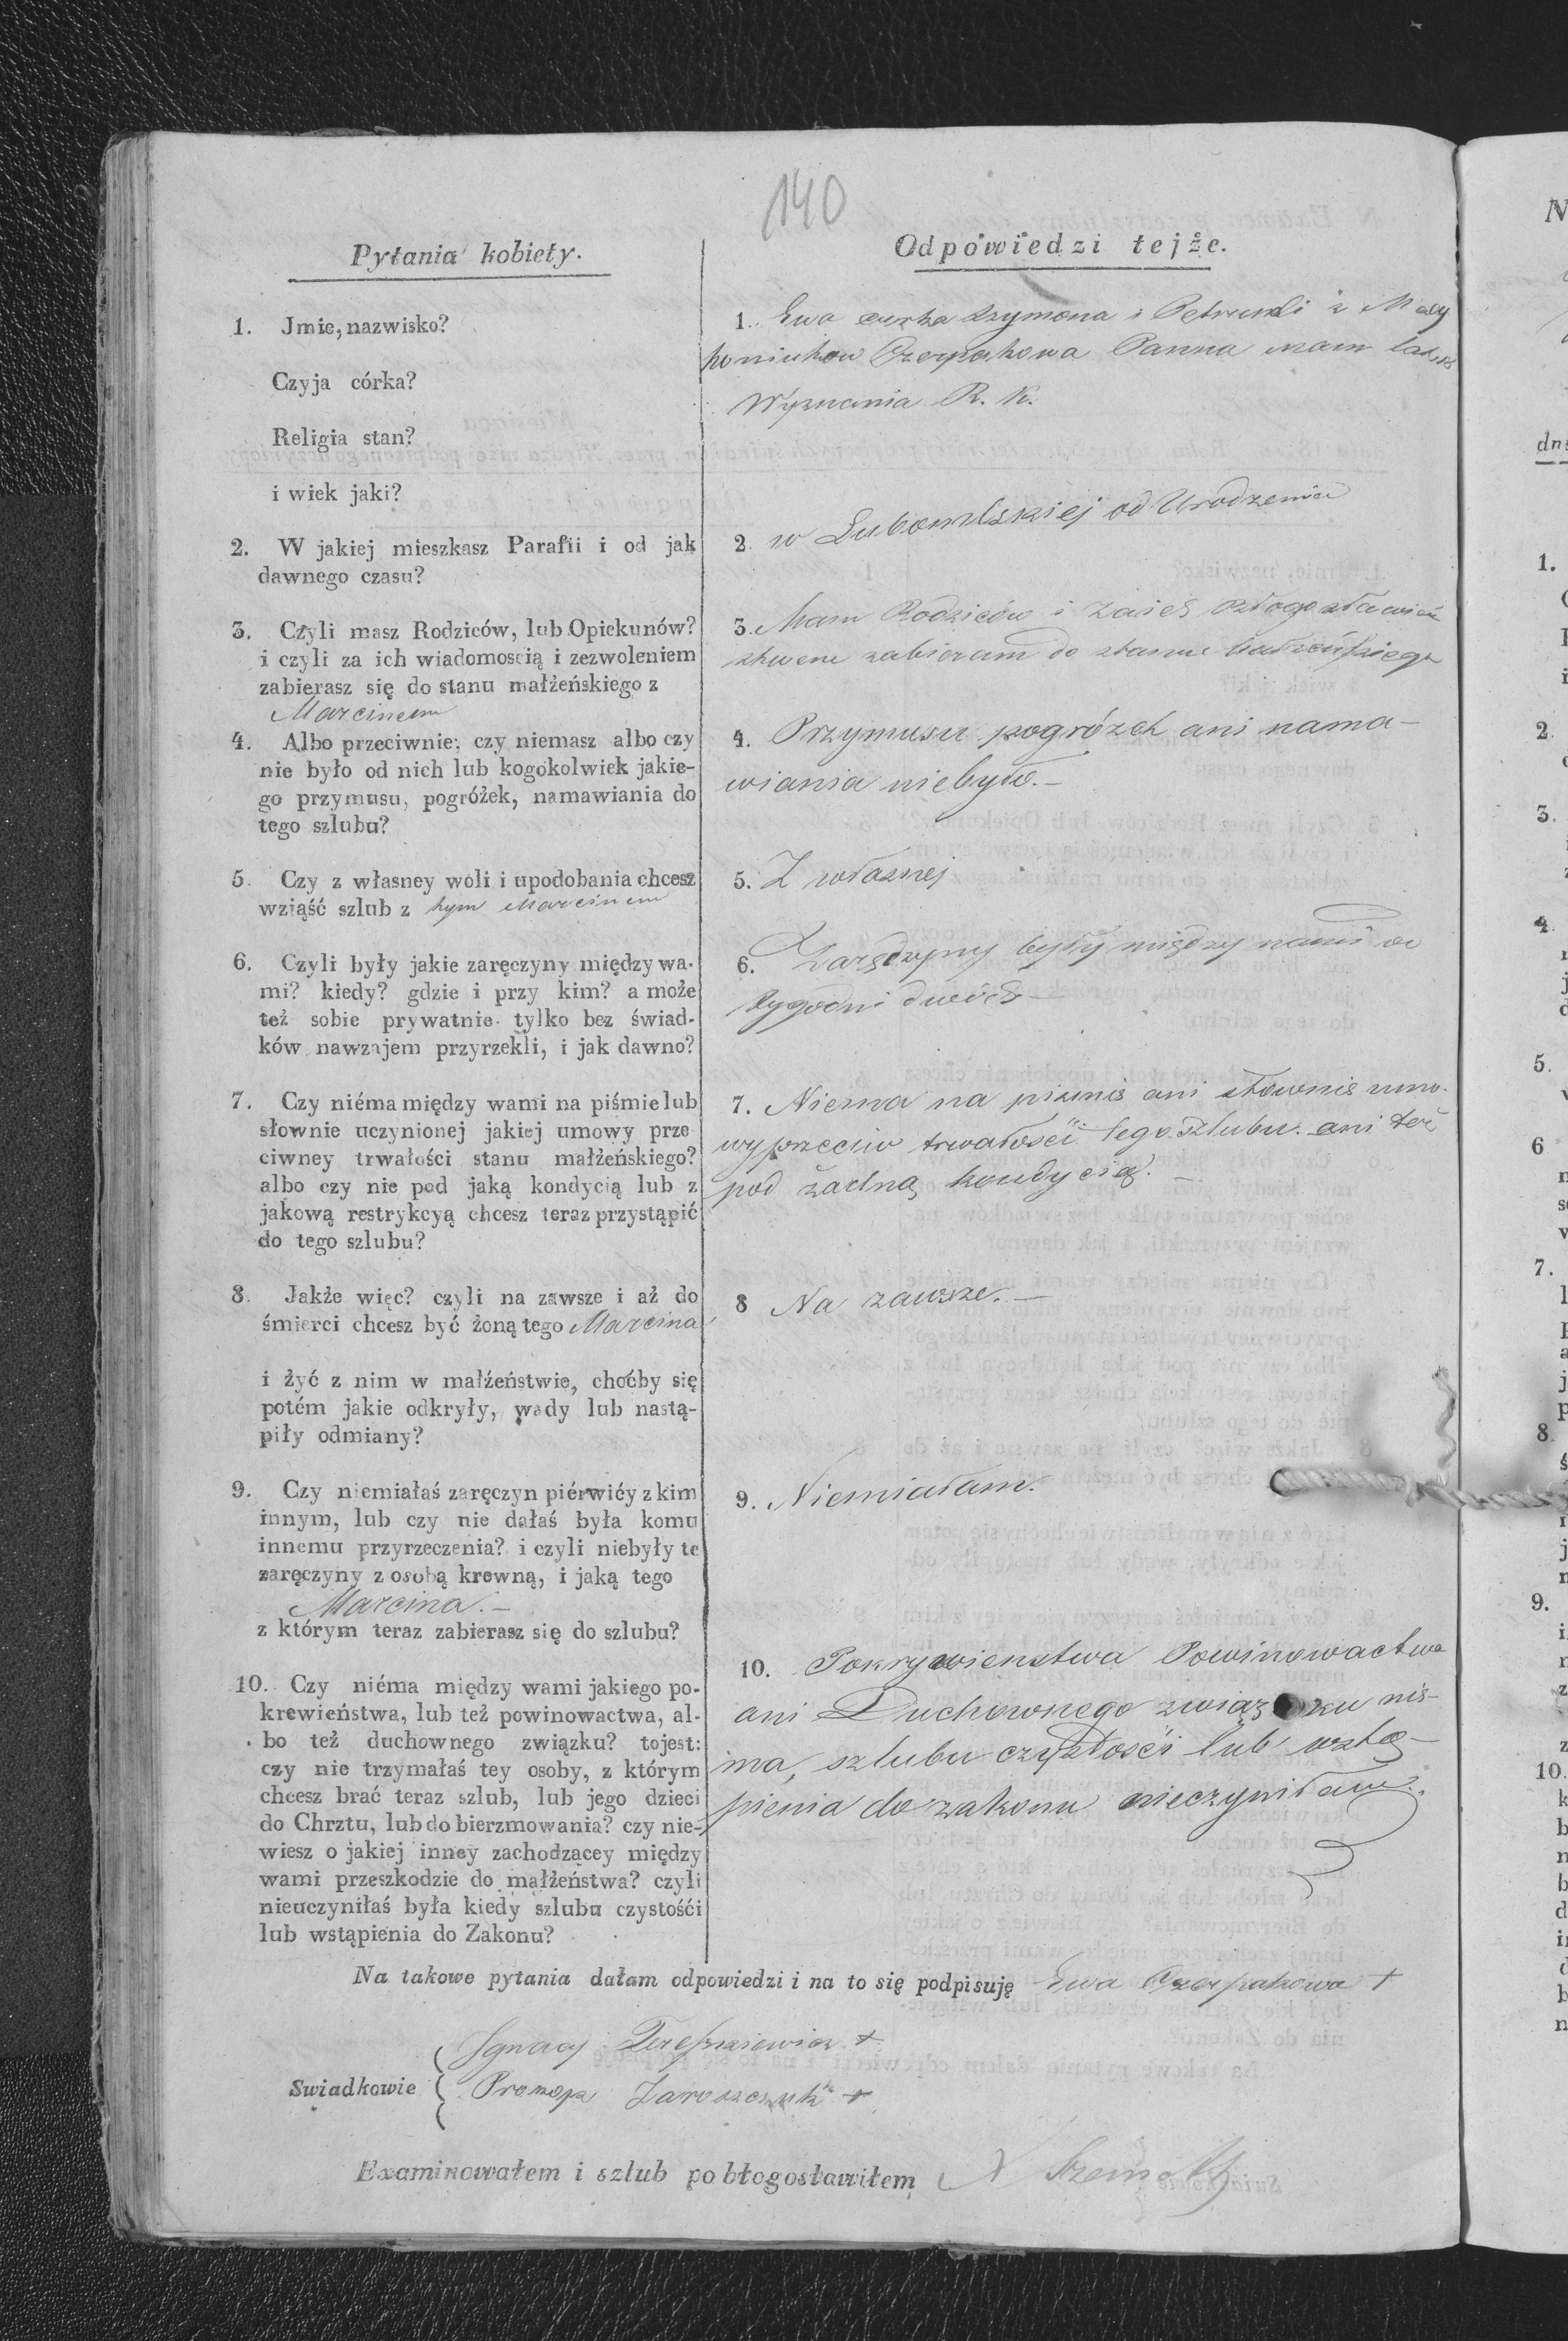 140
Pytania kobiety.
Odpowiedzi tejże.
1. Jmie, nazwisko?
Czyja córka?
Religia stan?
i wiek jaki?
1. Ewa curka Szymona i Petruneli z
Panna mam lat
Wyznania R. K.
2. W jakiej mieszkasz Parafii i od jak
dawnego czasu?
2. w Lubomlskiej od Urodzenia
3. Czyli masz Rodziców, lub Opiekunów?
i czyli za ich wiadomością i zezwoleniem
zabierasz się do stanu małżeńskiego z
Marcinem
3. Mam Rodziców i
zabieram do stanu
4. Albo przeciwnie; czy niemasz albo czy
nie było od nich lub kogokolwiek jakie-
go przymusu, pogróżek, namawiania do
tego szlubu?
4. Przymusu pogrózek ani nama-
wiania niebyło.-
5. Czy z własney woli i upodobania chcesz
wziąść szlub z tym Marcinem
5. Z własnej
6. Czyli były jakie zaręczyny między wa-
mi? kiedy? gdzie i przy kim? a może
też sobie prywatnie tylko bez świad-
ków nawzajem przyrzekli, i jak dawno?
6. Zaręczyny były między nami
tygodni dwóch
7. Czy niéma między wami na piśmie lub
słownie uczynionej jakiej umowy prze
ciwney trwałości stanu małżeńskiego?
albo czy nie pod jaką kondycią lub z
jakową restrykcyą chcesz teraz przystąpić
do tego szlubu?
7. Niema na pismie ani słownie umo-
wy przeciw trwałości tego szlubu. ani też
pod żadną kondycią. -
8. Jakże więc? czyli na zawsze i aż do
śmierci chcesz być żoną tego Marcina
i żyć z nim w małżeństwie, choćby się
potém jakie odkryły, wady lub nastą-
piły odmiany?
8 Na zawsze. -
9. Czy niemiałaś zaręczyn piérwićy z kim
innym, lub czy nie dałaś była komu
innemu przyrzeczenia? i czyli niebyły te
zaręczyny z osobą krewną, i jaką tego
Marcina.-
z którym teraz zabierasz się do szlubu?
9. Niemiałam.
10. Czy niéma między wami jakiego po-
krewieństwa, lub też powinowactwa, al-
bo też duchownego związku? tojest:
czy nie trzymałaś tey osoby, z którym
chcesz brać teraz szlub, lub jego dzieci
do Chrztu, lub do bierzmowania? czy nie-
wiesz o jakiej inney zachodzącey między
wami przeszkodzie do małżeństwa? czyli
nieuczyniłaś była kiedy szlubu czystośći
lub wstąpienia do Zakonu?
10. Pokrywienstwa Powinowactwa
ani Duchownego związku nie-
ma, szlubu czystości lub wstą-
pienia do zakonu nieczyniłam.
Na takowe pytania dałam odpowiedzi i na to się podpisuję Ewa +
Swiadkowie
Jgnacy +
Prokop Jaroszczuk +
Examinowałem i szlub pobłogosławiłem